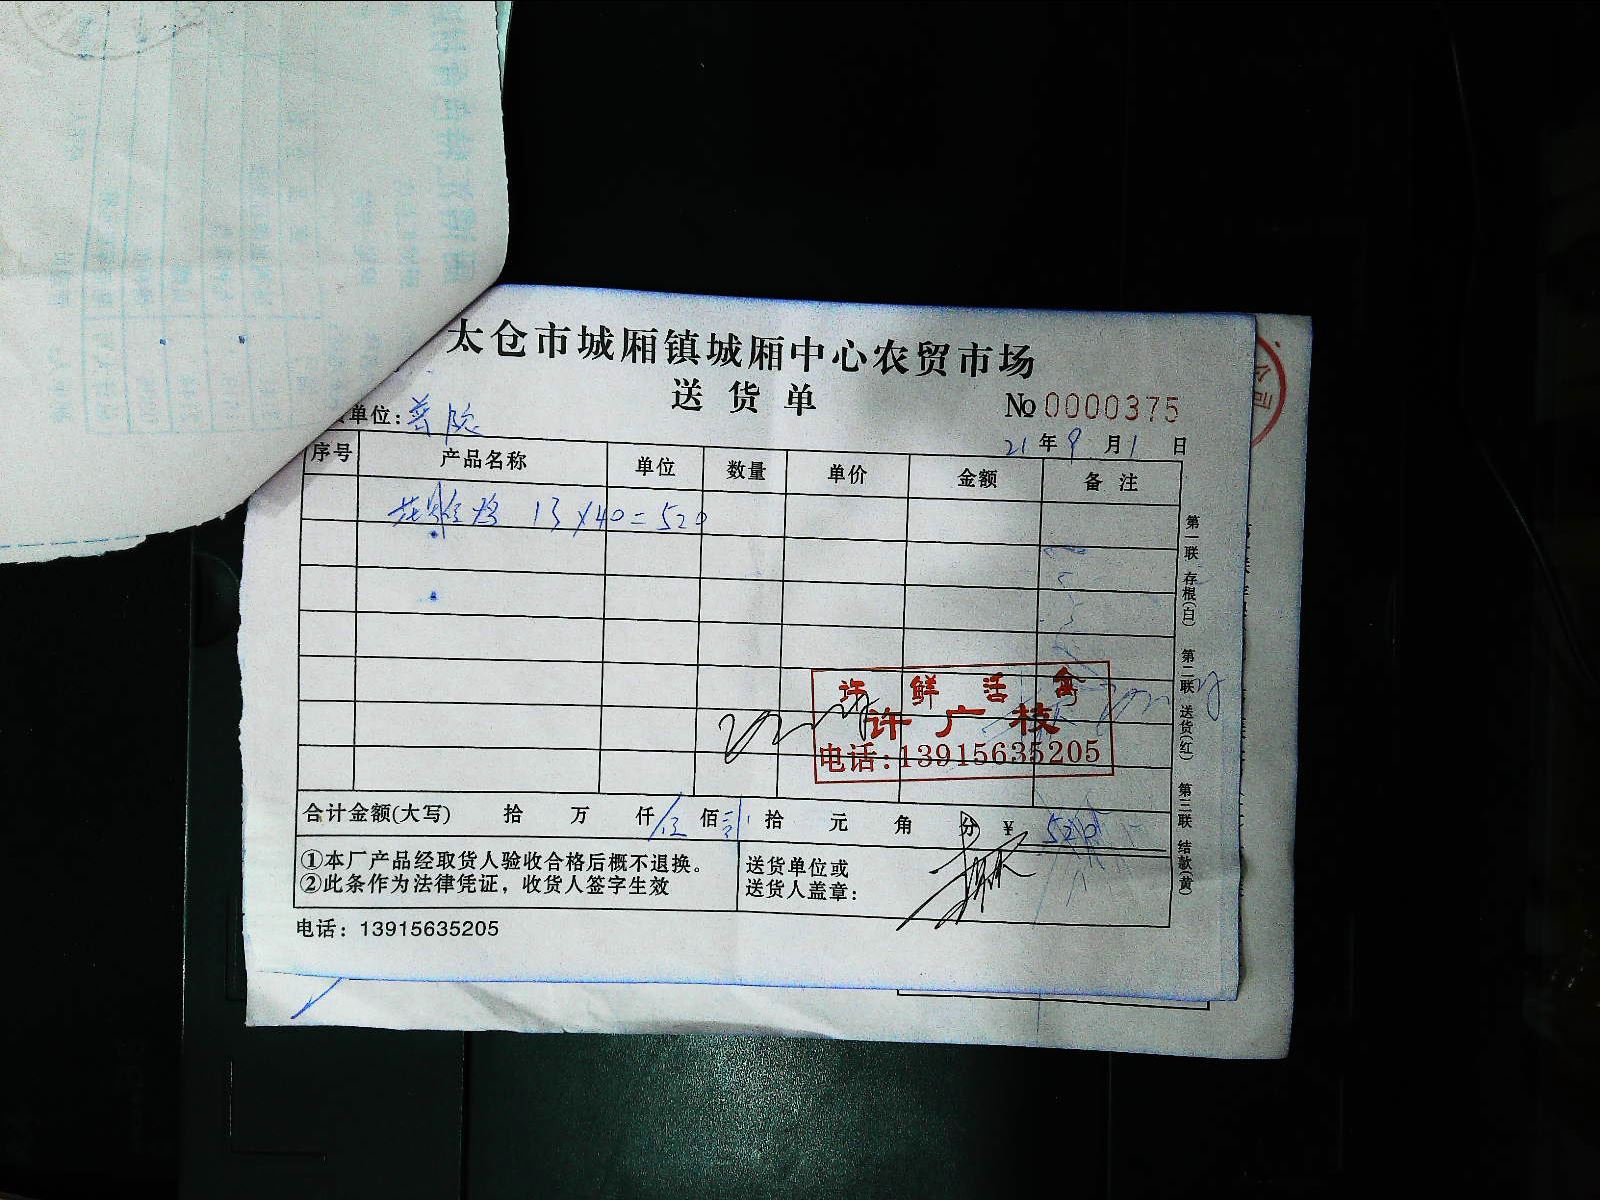 太仓市城厢镇城厢中心农贸市场
送货单
№ 0000375
单位: 普陀
21年9月1日
序号 产品名称 单位 数量 单价 金额 备注
13×40=520
第一联 存根(白) 第二联 送货(红) 第三联 结款(黄)
许 鲜 活 禽
许广枝
电话:13915635205
合计金额(大写) 拾 万 仟 伍 佰 贰 拾 元 角 分 ¥ 520
①本厂产品经取货人验收合格后概不退换。
②此条作为法律凭证，收货人签字生效
送货单位或
送货人盖章:
电话: 13915635205
公司